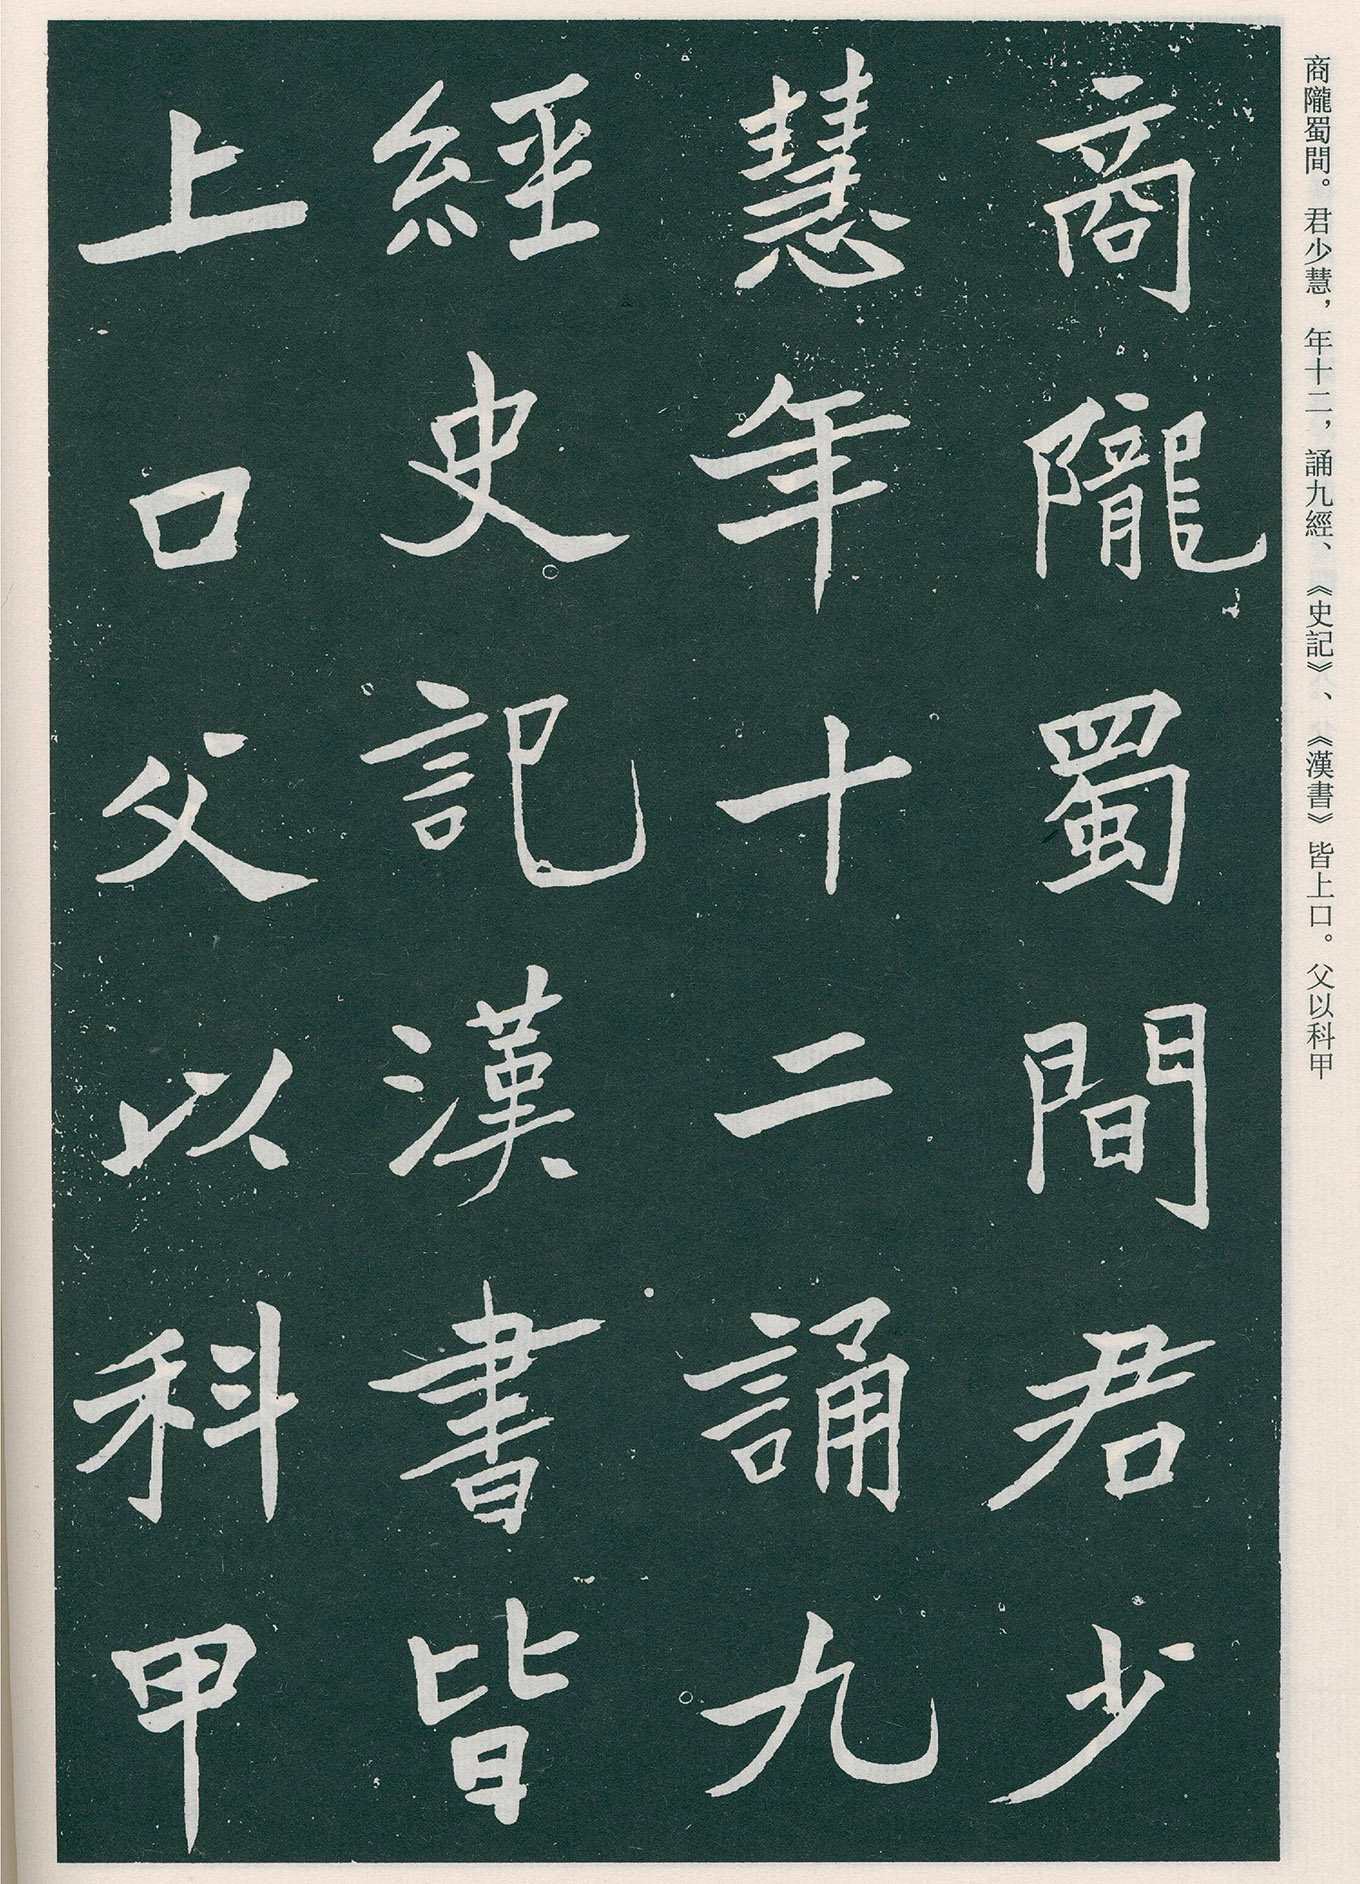 商隴蜀間。君少慧，年十二，誦九經、《史記》、《漢書》皆上口。父以科甲
商隴蜀間君少
慧年十二誦九
經史記漢書皆
上口父以科甲